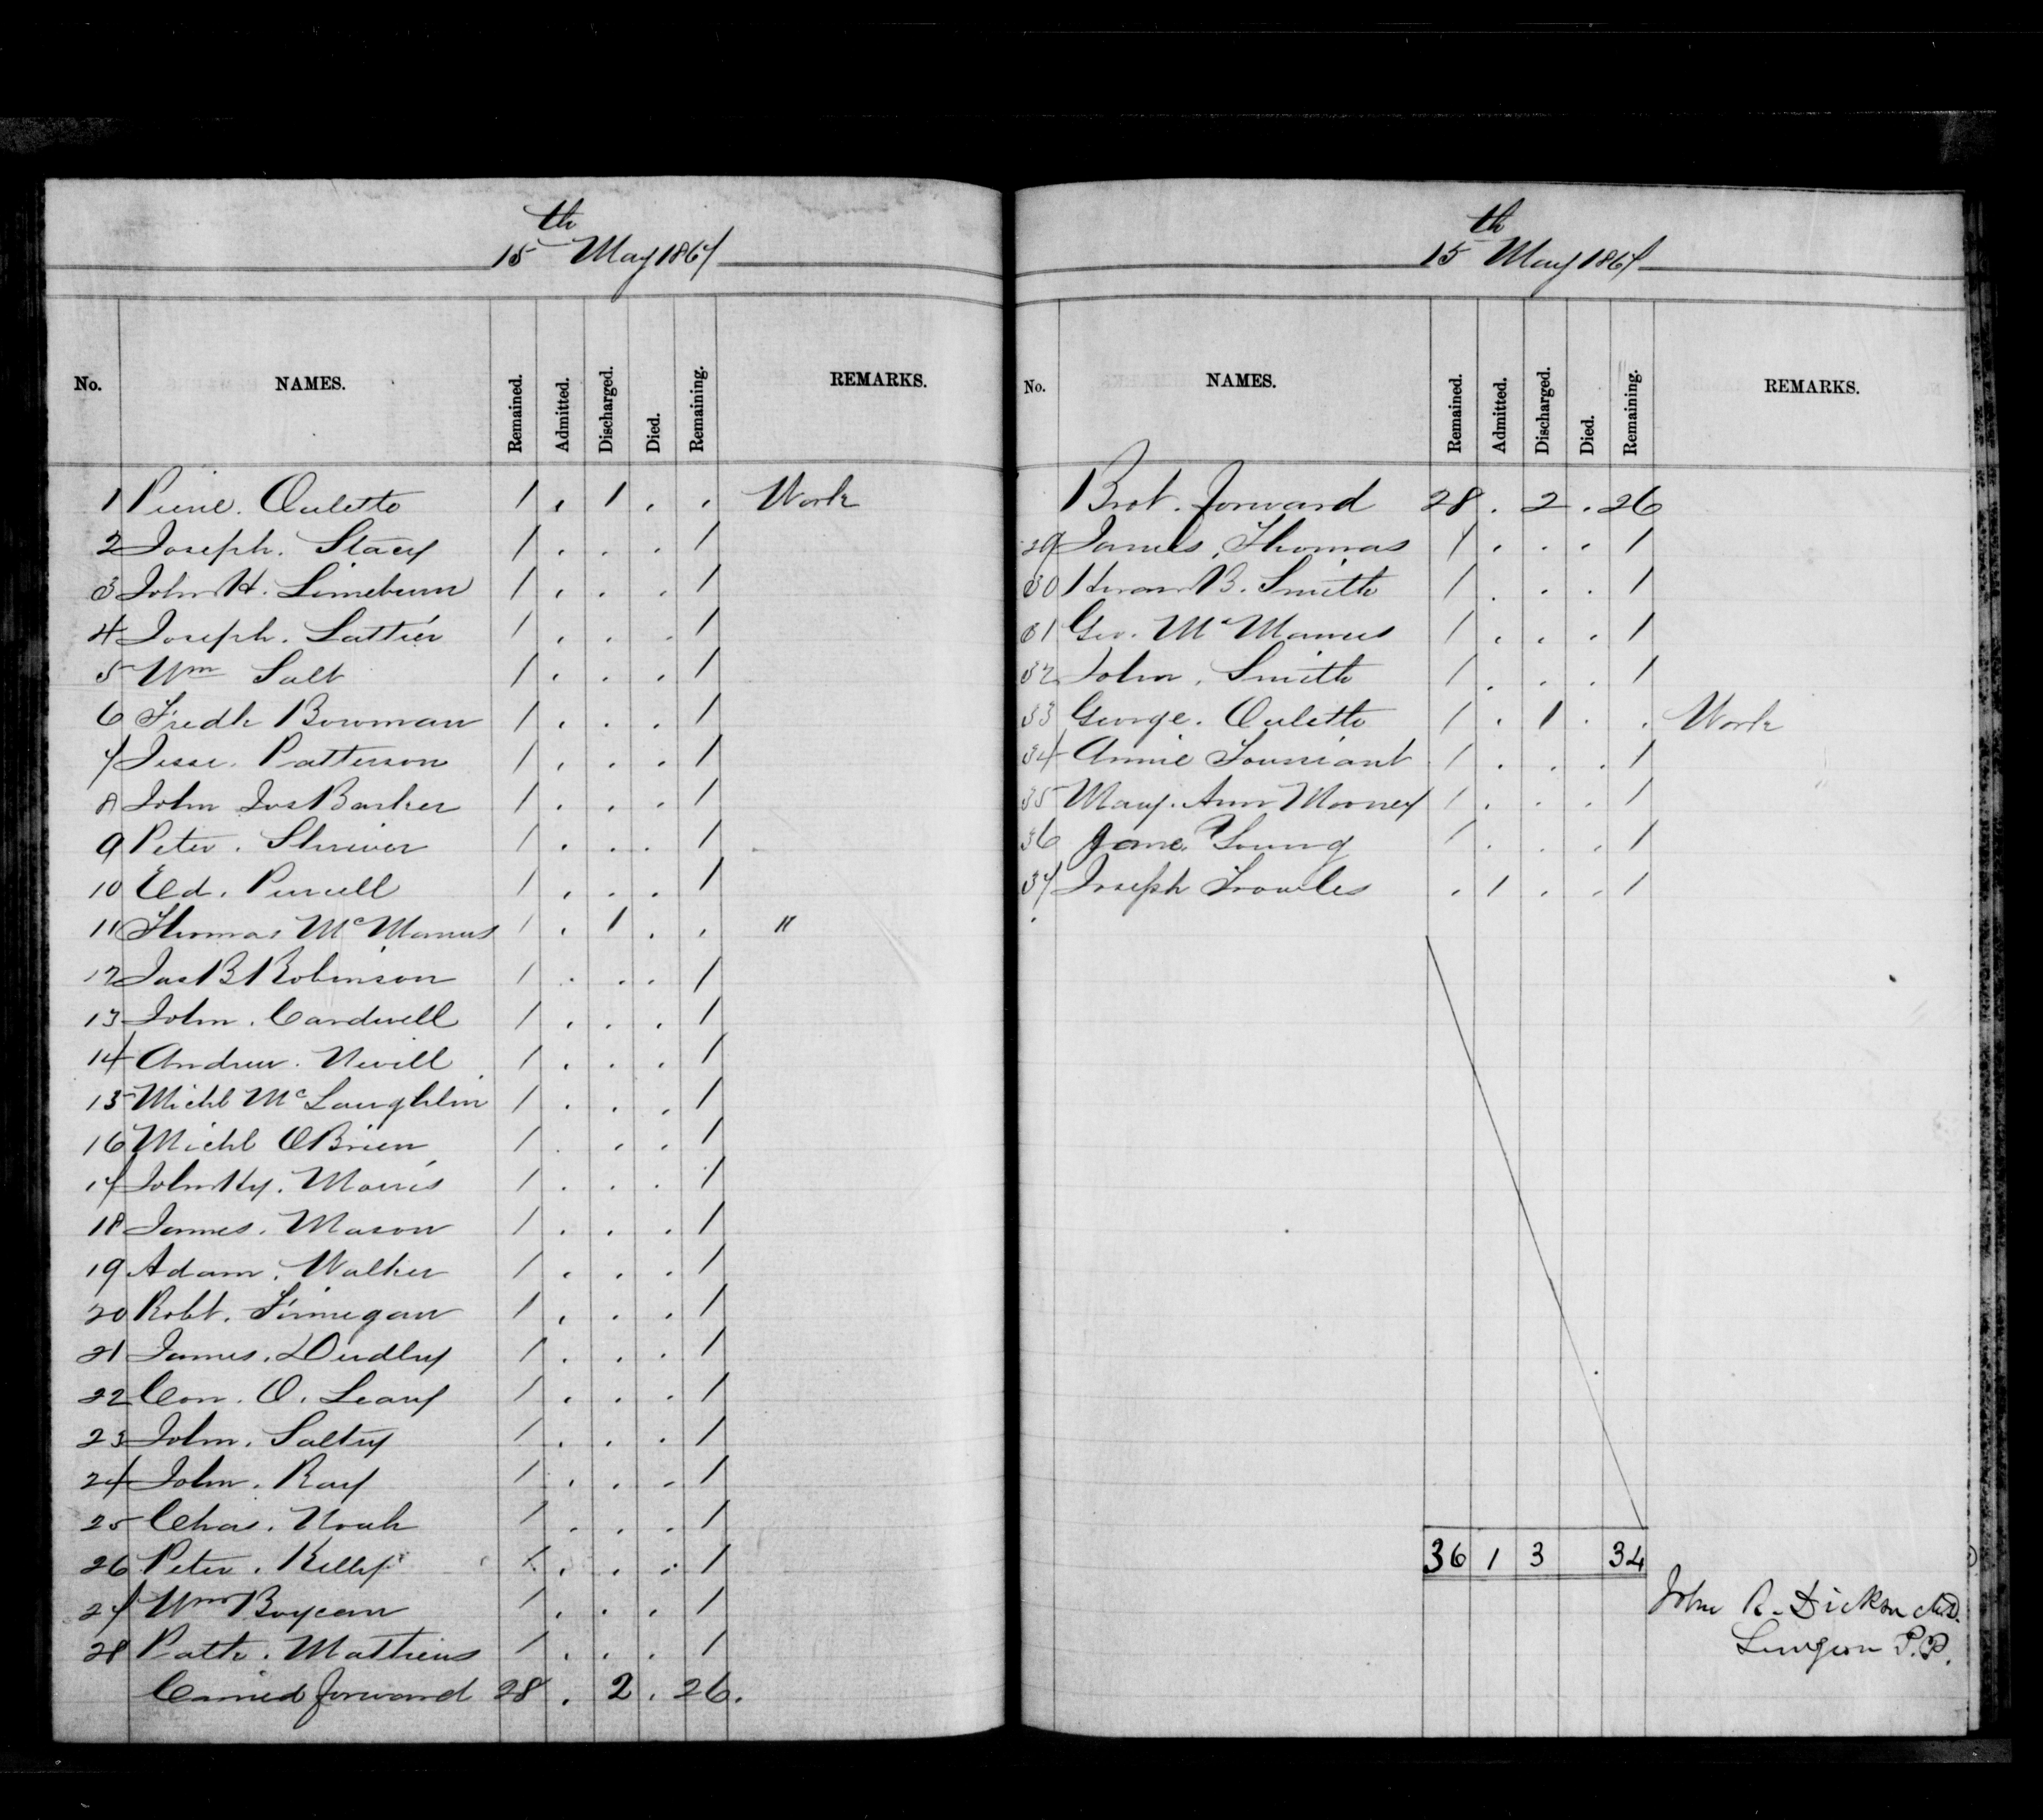 15th May 1867
No. NAMES. Remained. Admitted. Discharged. Died. Remaining. REMARKS.
1 Ouletto 1 . 1 . . Work
2 Joseph. Stacy 1 . . . 1
3 John H. Limeburn 1 . . . 1
4 Joseph. Lattier 1 . . . 1
5 Wm Salt 1 . . . 1
6 Fredk Bowman 1 . . . 1
7 Jesse. Patterson 1 . . . 1
8 John Jos Barker 1 . . . 1
9 Peter. Shriver 1 . . . 1
10 Ed. Purcell 1 . . . 1
11 Thomas McManus 1 . 1 . . "
12 Jas B Robinson 1 . . . 1
13 John. Cardwell 1 . . . 1
14 Andrew. Nevill 1 . . . 1
15 Michl McLaughlin 1 . . . 1
16 Michl OBrien 1 . . . 1
17 John Hy. Morris 1 . . . 1
18 James. Mason 1 . . . 1
19 Adam. Walker 1 . . . 1
20 Robt. Finnegan 1 . . . 1
21 James. Dudley 1 . . . 1
22 Con. O. Leary 1 . . . 1
23 John. Saltry 1 . . . 1
24 John. Ray 1 . . . 1
25 Chas. Noah 1 . . . 1
26 Peter. Kelly 1 . . . 1
27 Wm Boyean 1 . . . 1
28 Patk. Mathews 1 . . . 1
Carried forward 28 . 2 . 26.
15th May 1867
No. NAMES. Remained. Admitted. Discharged. Died. Remaining. REMARKS.
Brot. forward 28 . 2 . 26
29 James. Thomas 1 . . . 1
30 Hiram B. Smith 1 . . . 1
31 Geo. McManus 1 . . . 1
32 John. Smith 1 . . . 1
33 George. Ouletto 1 . 1 . . Work
34 Annie Toussiant 1 . . . 1
35 Mary. Ann Mooney 1 . . . 1
36 Jane. Young 1 . . . 1
37 Joseph Trowles . 1 . . 1
36 1 3 34
John R. Dickson M.D.
Surgeon P.P.